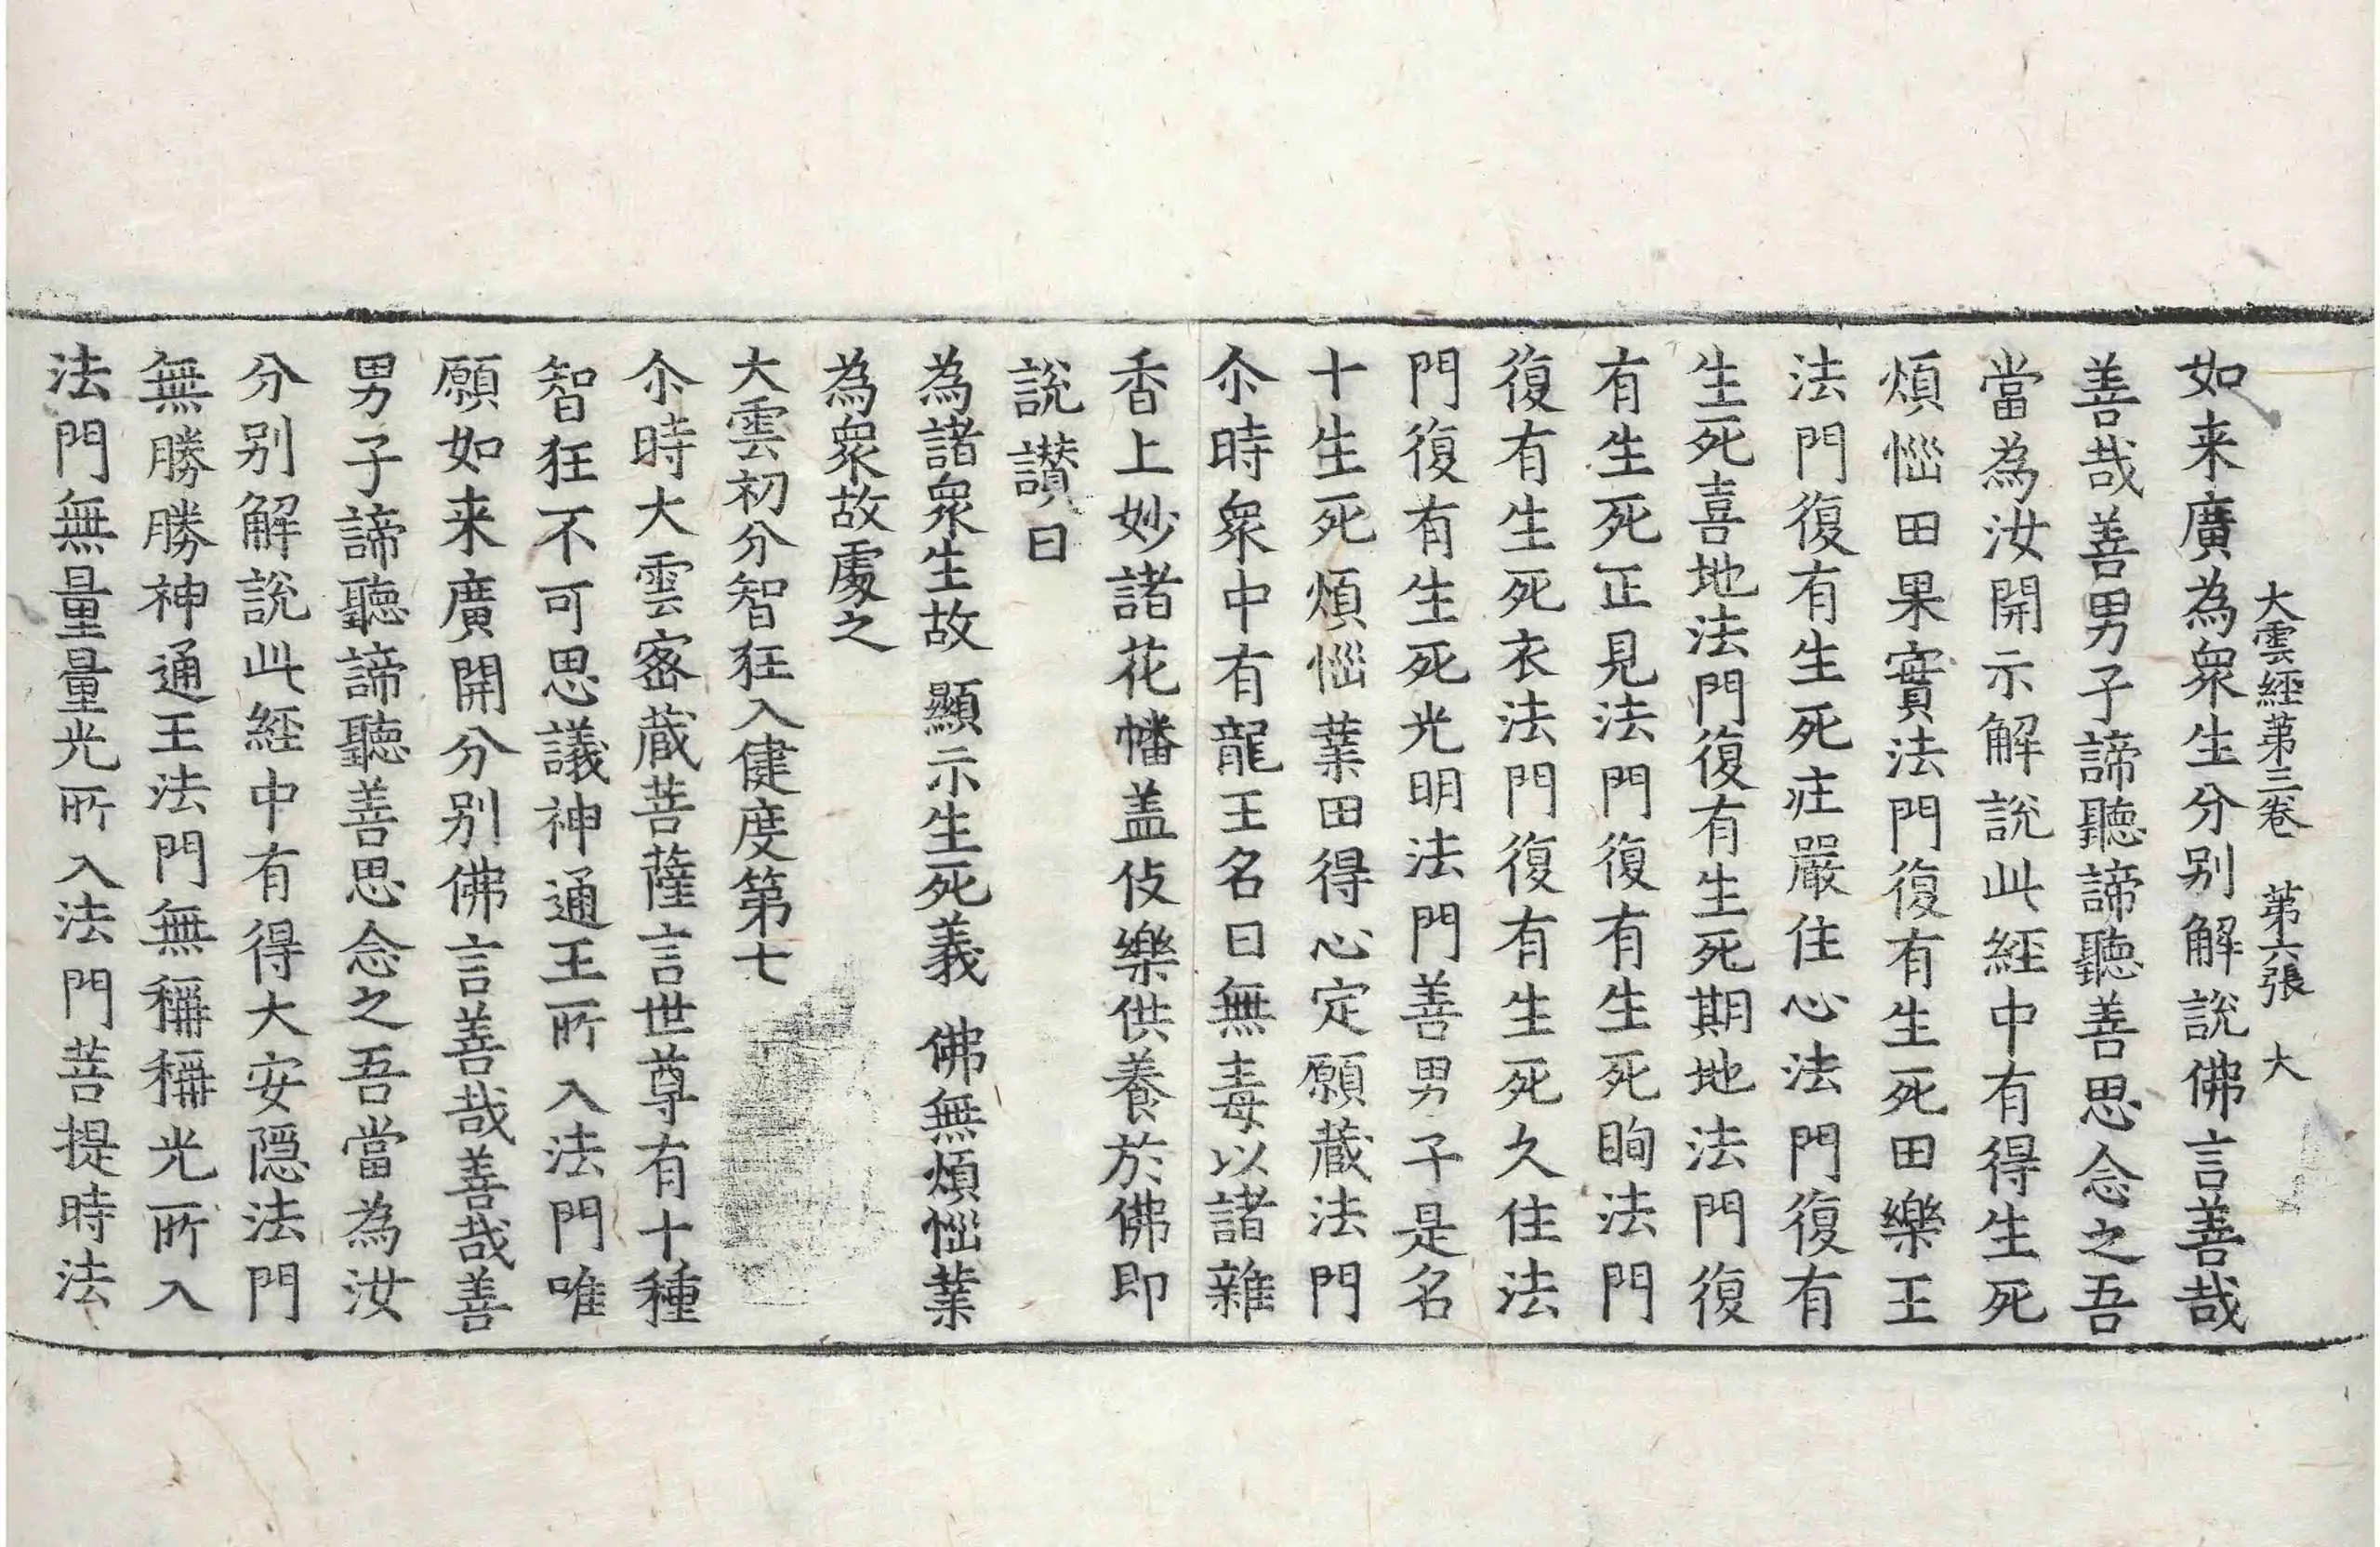 大雲經第三卷　第六張　大
如来廣為衆生分别解說佛言善哉
善哉善男子諦聽諦聽善思念之吾
當為汝開示解說此經中有得生死
煩惱田果實法門復有生死田樂王
法門復有生死庄嚴住心法門復有
生死喜地法門復有生死期地法門復
有生死正見法門復有生死眴法門
復有生死衣法門復有生死久住法
門復有生死光明法門善男子是名
十生死煩惱業田得心定願蔵法門
尒時衆中有龍王名曰無毒以諸雜
香上妙諸花幡盖伎樂供養於佛即
說讃曰
為諸衆生故　顯示生死義　佛無煩惱業
為衆故處之
大雲初分智狂入健度第七
尒時大雲密蔵菩薩言世尊有十種
智狂不可思議神通王所入法門唯
願如来廣開分别佛言善哉善哉善
男子諦聽諦聽善思念之吾當為汝
分别解說此經中有得大安隱法門
無勝勝神通王法門無稱稱光所入
法門無量量光所入法門菩提時法